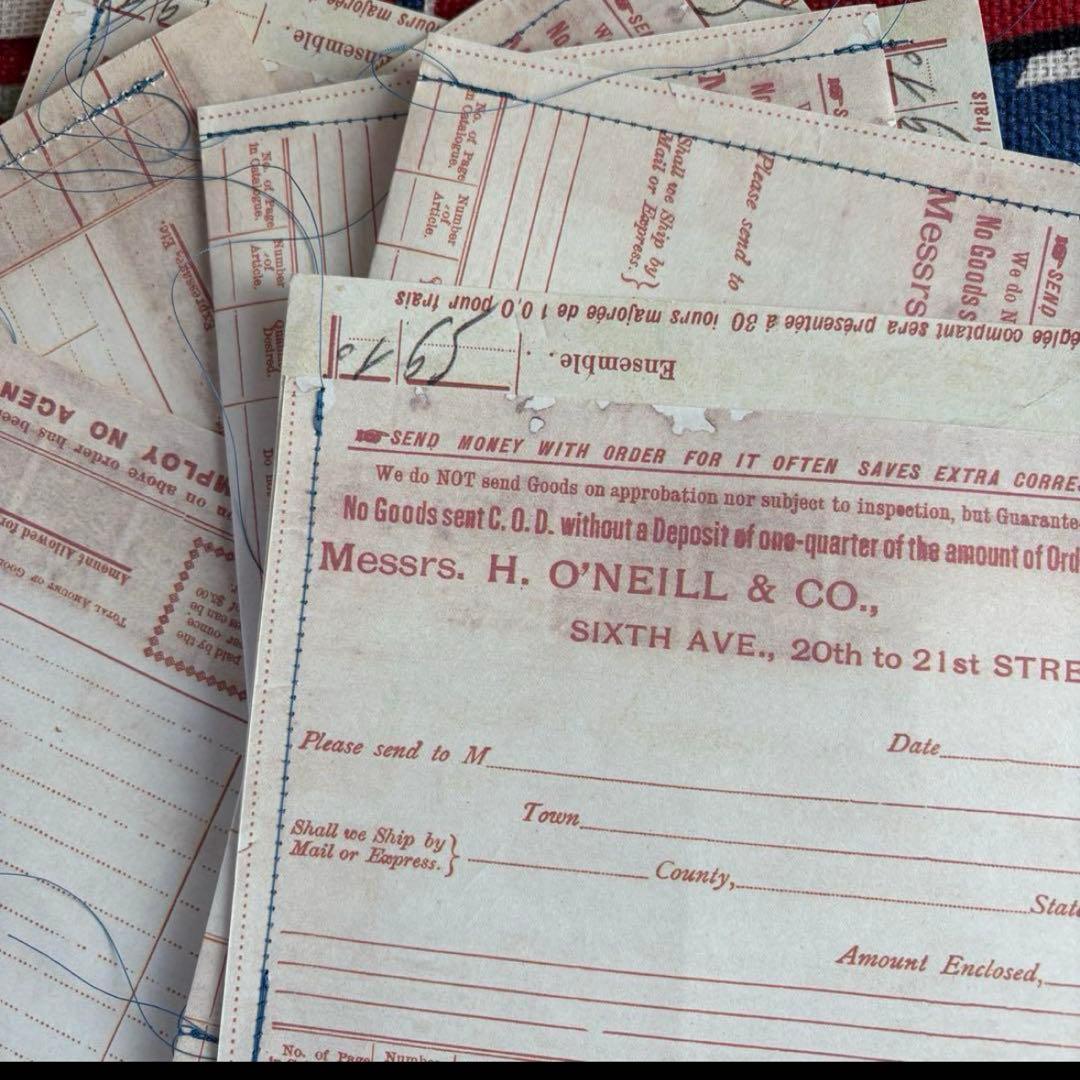 jours majorée
Ensemble.
trais
No. of Page
in Catalogue.
Number
of
Article.
Shall we Ship by
Mail or Express.}
Please send to
Messrs
No Goods s
We do N
SEND
No. of Page
in Catalogue.
Number
of
Article.
Desired.
Express, Etc.
MPLOY NO AGEN
on above order has been
Amount Allowed for
TOTAL AMOUNT OF GOODS
of $5.00
es can be
er ounce.
paid by the
églée comptant sera présentée à 30 jours majorée de 1 0/0 pour frais
Ensemble. . .
59 10
SEND MONEY WITH ORDER FOR IT OFTEN SAVES EXTRA CORRE
We do NOT send Goods on approbation nor subject to inspection, but Guarante
No Goods sent C. O. D. without a Deposit of one-quarter of the amount of Ord
Messrs. H. O'NEILL & CO.,
SIXTH AVE., 20th to 21st STRE
Please send to M
Date
Town
Shall we Ship by
Mail or Express.}
County,
State
Amount Enclosed,
No. of Page
Number